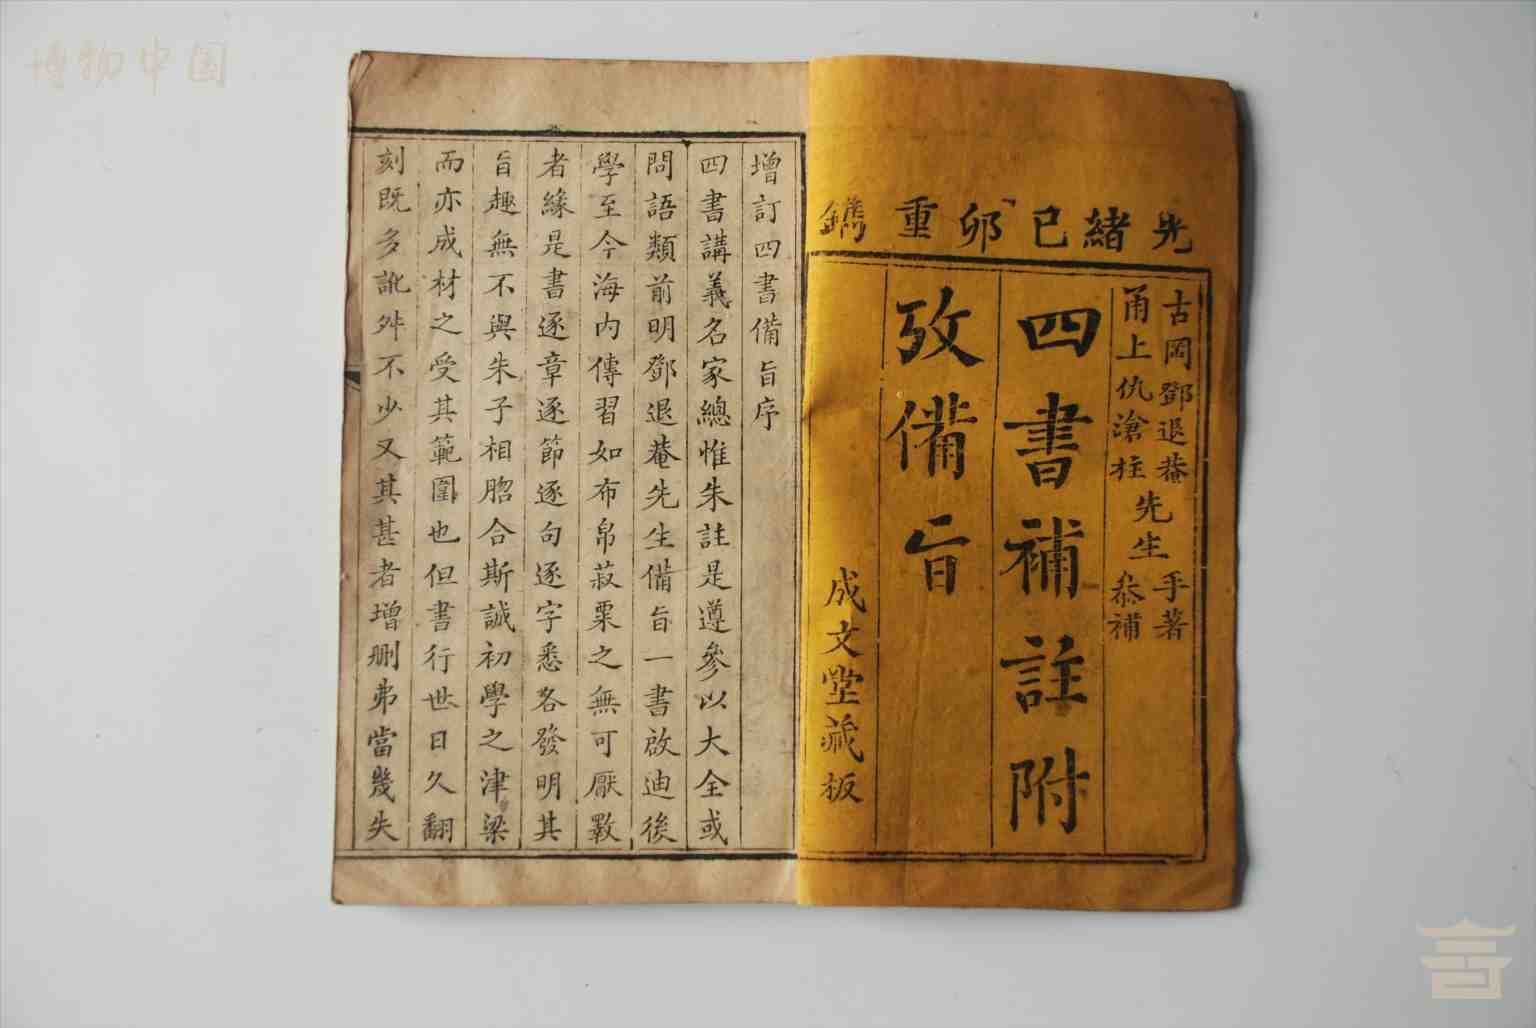 博物中国
光緒己卯重鐫
古岡鄧退菴先生手著
甬上仇滄柱先生叅補
四書補註附
攷備旨
成文堂藏板
增訂四書備旨序
四書講義名家總惟朱註是遵參以大全或
問語類前明鄧退菴先生備旨一書啟迪後
學至今海內傳習如布帛菽栗之無可厭斁
者緣是書逐章逐節逐句逐字悉各發明其
旨趣無不與朱子相脗合斯誠初學之津梁
而亦成材之受其範圍也但書行世日久翻
刻既多訛舛不少又其甚者增刪弗當幾失